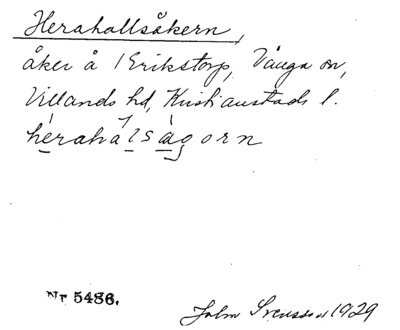 Herahallsåkern,
åker å 1 Erikstorp, Vånga sn,
Villands hd, Kristianstads l.
hérahàlsàgorn
Nr 5486.
John Svensson 1929